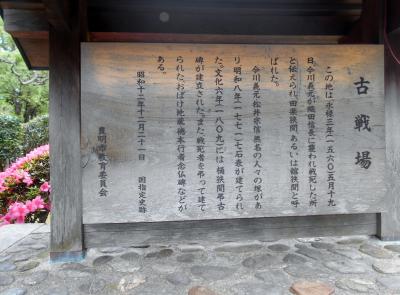 古戦場
この地は、永禄三年(一五六〇)五月十九
日、今川義元が織田信長に襲われ戦死した所
と伝えられ、田楽狭間あるいは舘狭間と呼
ばれた。
今川義元、松井宗信、無名の人々の塚があ
り、明和八年(一七七一)七石表が建てられ
た。文化六年(一八〇九)には、桶狭間弔古
碑が建立された。また、戦死者を弔って建て
られた、おばけ地蔵、徳本行者念仏碑などが
ある。
昭和十二年十二月二十一日 国指定史跡
豊明市教育委員会